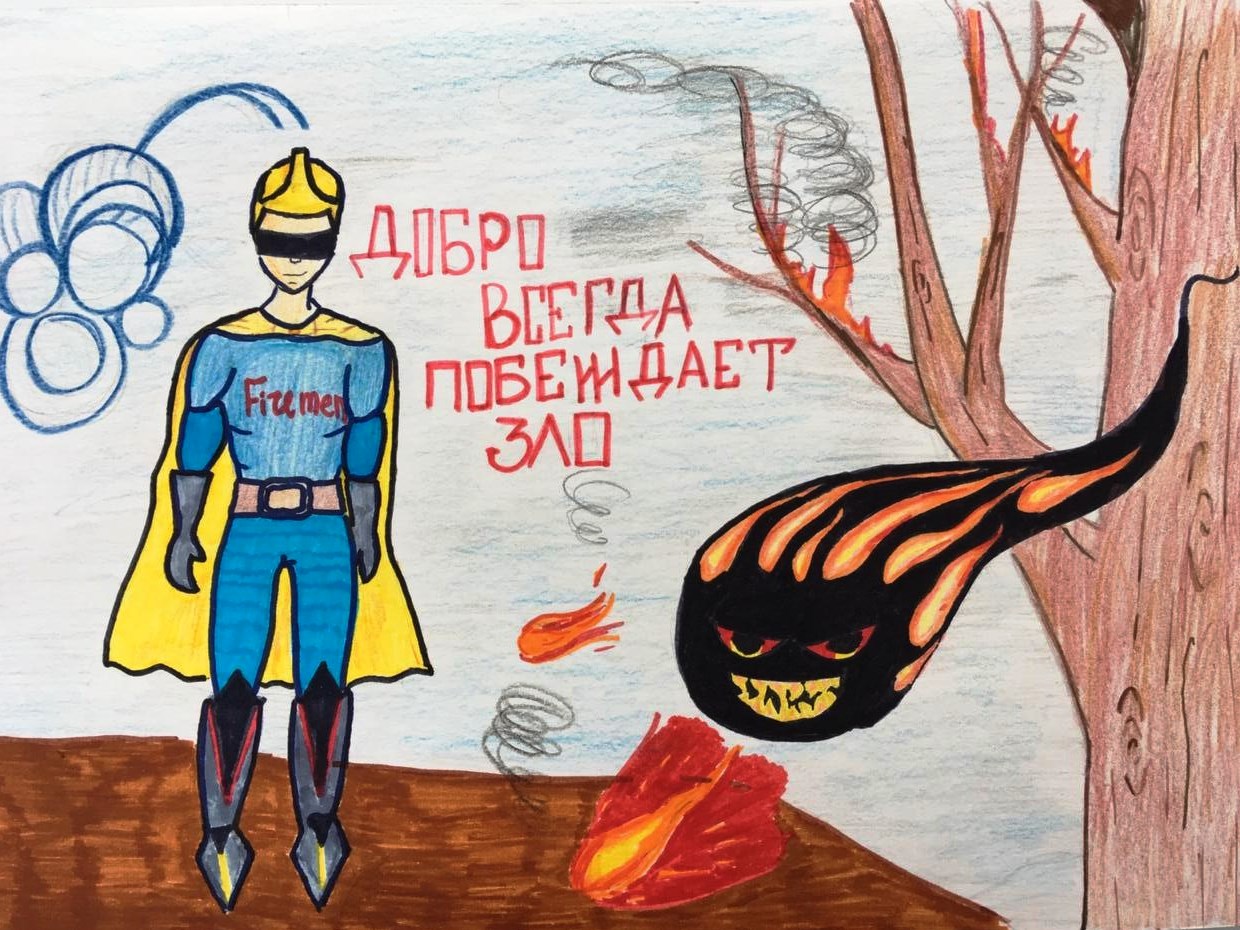 ДОБРО
ВСЕГДА
ПОБЕЖДАЕТ
ЗЛО
Firemen